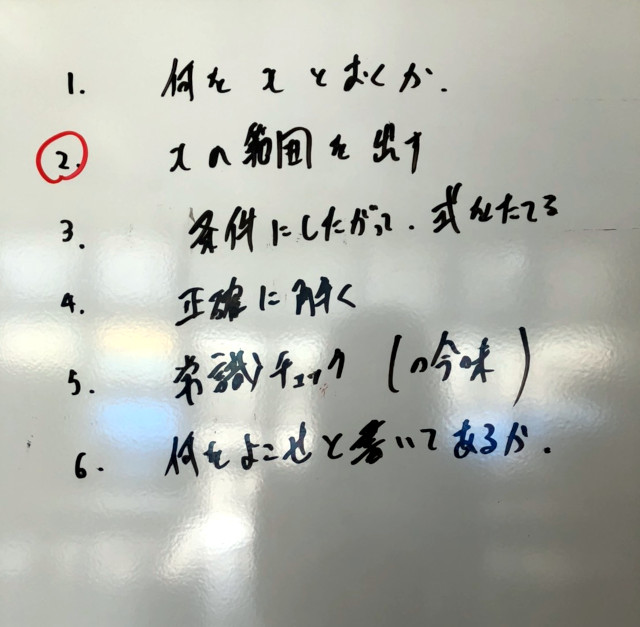 1. 何を x とおくか.
2. x の範囲を出す
3. 条件にしたがって. 式をたてる
4. 正確に解く
5. 常識チェック (の吟味)
6. 何をよこせと書いてあるか.